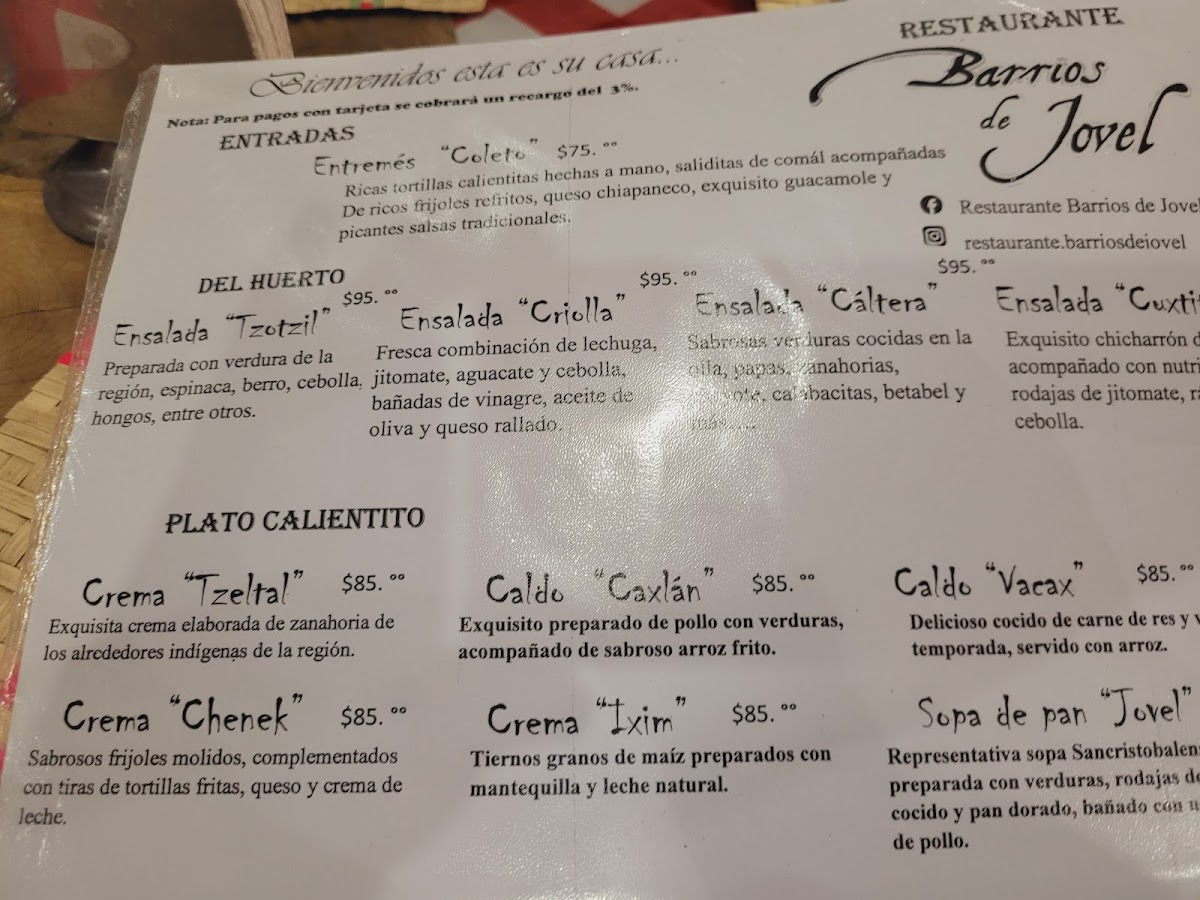 RESTAURANTE
Barrios
de Jovel
Bienvenidos esta es su casa...
Nota: Para pagos con tarjeta se cobrará un recargo del 3%.
ENTRADAS
Entremés "Coleto" $75.ºº
Ricas tortillas calientitas hechas a mano, saliditas de comál acompañadas
De ricos frijoles refritos, queso chiapaneco, exquisito guacamole y
picantes salsas tradicionales.
Restaurante Barrios de Jovel
restaurante.barriosdejovel
DEL HUERTO
Ensalada "Tzotzil" $95.ºº
Preparada con verdura de la
región, espinaca, berro, cebolla,
hongos, entre otros.
Ensalada "Criolla" $95.ºº
Fresca combinación de lechuga,
jitomate, aguacate y cebolla,
bañadas de vinagre, aceite de
oliva y queso rallado.
Ensalada "Cáltera" $95.ºº
Sabrosas verduras cocidas en la
olla, papas, zanahorias,
calabacitas, betabel y
más....
Ensalada
Exquisito chicharrón
acompañado con
rodajas de jitomate,
cebolla.
PLATO CALIENTITO
Crema "Tzeltal" $85.ºº
Exquisita crema elaborada de zanahoria de
los alrededores indígenas de la región.
Caldo "Caxlán" $85.ºº
Exquisito preparado de pollo con verduras,
acompañado de sabroso arroz frito.
Caldo "Vacax" $85.ºº
Delicioso cocido de carne de res y
temporada, servido con arroz.
Crema "Chenek" $85.ºº
Sabrosos frijoles molidos, complementados
con tiras de tortillas fritas, queso y crema de
leche.
Crema "Ixim" $85.ºº
Tiernos granos de maíz preparados con
mantequilla y leche natural.
Sopa de pan "Jovel"
Representativa sopa
preparada con verduras, rodajas
cocido y pan dorado, bañado con
de pollo.